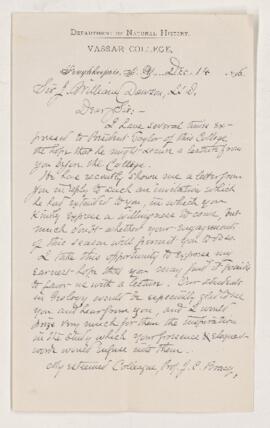 DEPARTMENT OF NATURAL HISTORY.
VASSAR COLLEGE,
Poughkeepsie, N. Y. Dec. 14 '96.
Sir J. William Dawson, LL.D.
Dear Sir:-
I have several times ex-
pressed to President Taylor of this College
the hope that he might secure a lecture from
you before the College.
He has recently shown me a letter from
you in reply to such an invitation which
he had extended to you, in which you
kindly express a willingness to come, but
much doubt whether your engagements
of this season will permit you to do so.
I take this opportunity to express my
earnest hope that you may find it possible
to favor us with a lecture. Our students
in Geology would be especially glad to see
you and hear from you, and I would
prize very much for them the inspiration
in the study which your presence & eloquent
words would infuse into them.
My esteemed Colleague, Prof. J. C. Bracq,